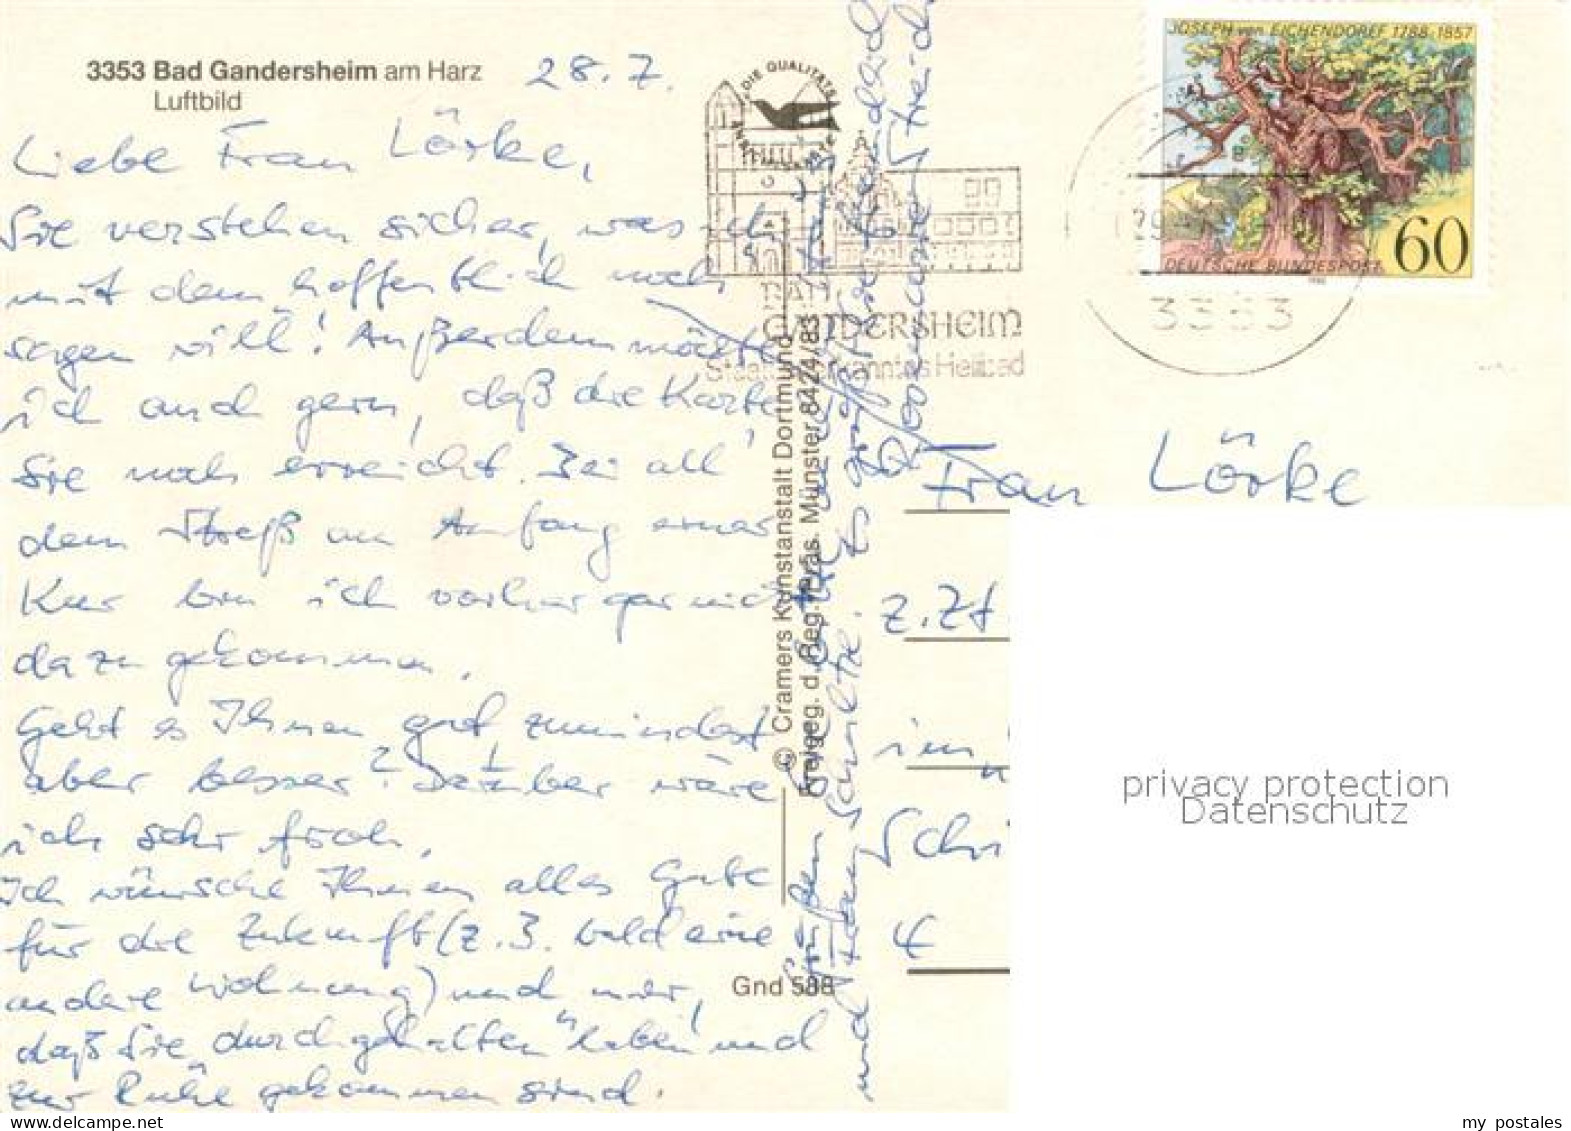 3353 Bad Gandersheim am Harz
Luftbild
28.7.
Liebe Frau Lörke,
Sie verstehen sicher, was ich
mit dem "hoffentlich noch
sagen will! Außerdem möchte
ich auch gern, daß die Karte
Sie noch erreicht. Bei all
dem Streß am Anfang einer
Kur bin ich vorher gar nicht
dazu gekommen.
Geht es Ihnen gut, zumindest
aber besser? Darüber wäre
ich sehr froh.
Ich wünsche Ihnen alles Gute
für die Zukunft (z.B. bald eine
andere Wohnung) und mir,
daß Sie "durchgehalten" haben und
zur Ruhe gekommen sind.
und Frau Schulte.
© Cramers Kunstanstalt Dortmund
Freigeg. d. Reg. Präs. Münster 8424/83
Gnd 588
DIE QUALITÄTS
BAD
GANDERSHEIM
Staatl. anerkanntes Heilbad
3353
JOSEPH von EICHENDORFF 1788-1857
60
DEUTSCHE BUNDESPOST
Frau Lörke
z.Zt.
im
Schi
4
privacy protection
Datenschutz
my postales